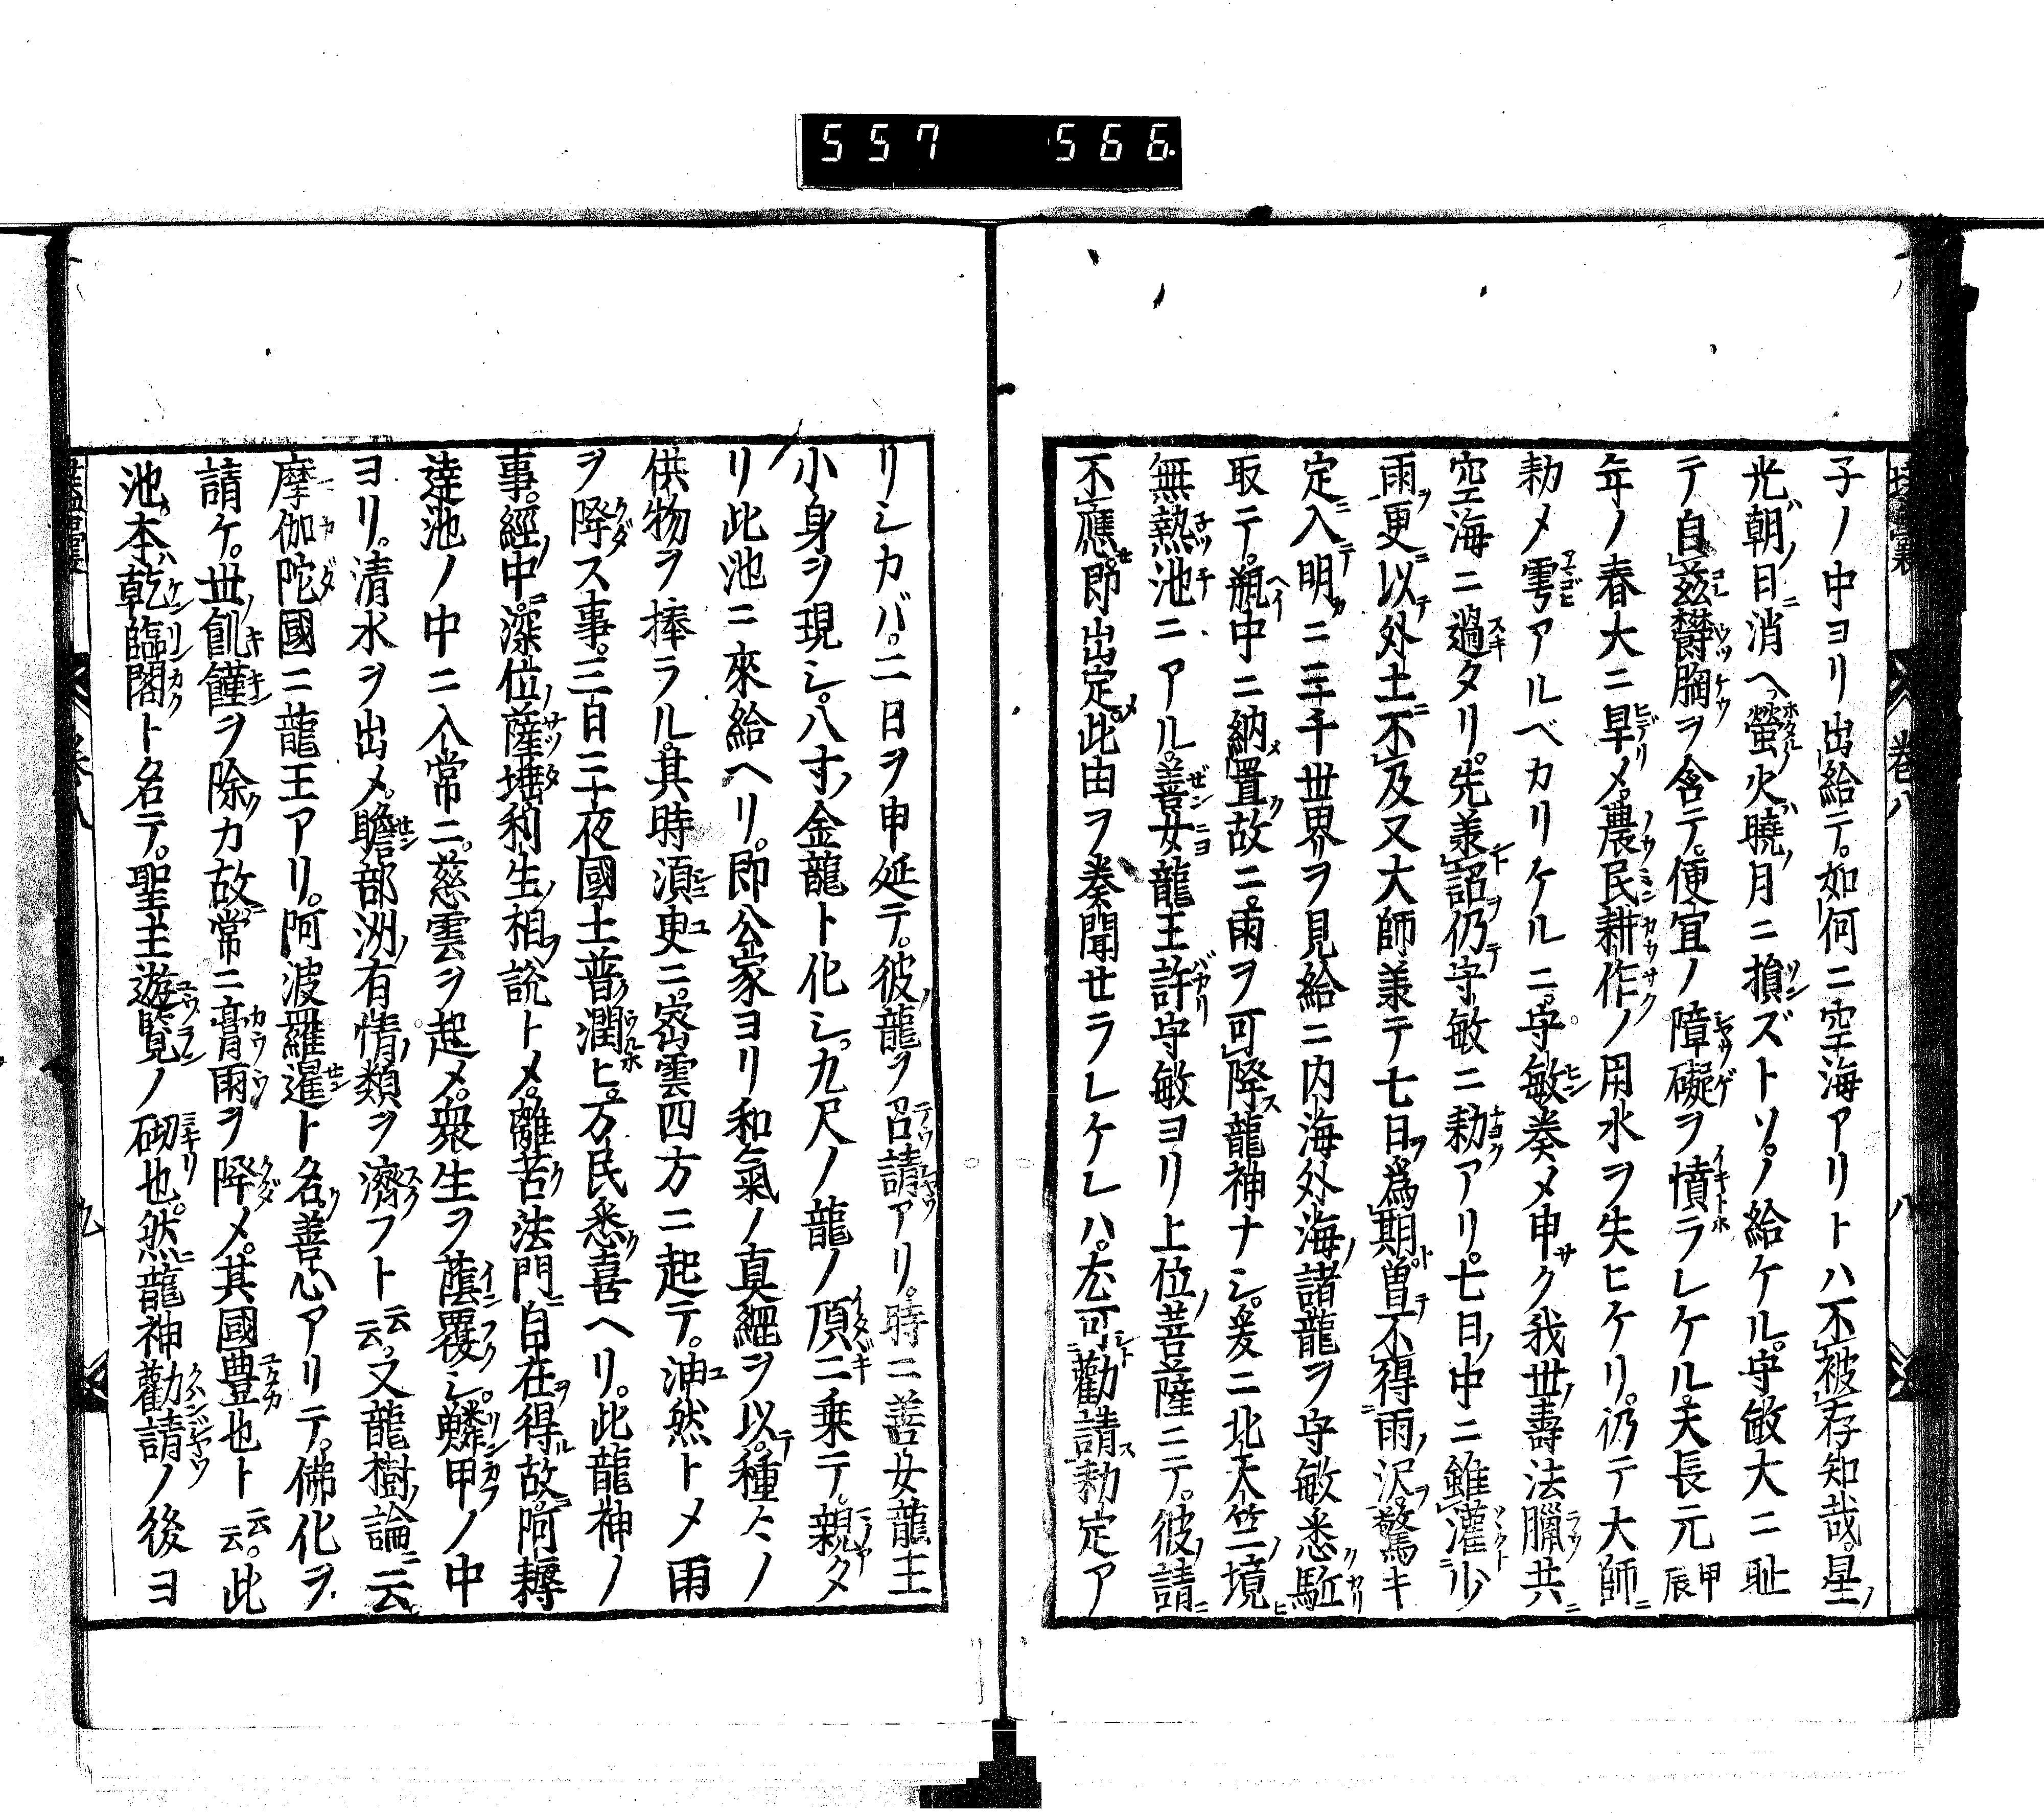 557 566
巻八
八
子ノ中ヨリ出給テ。如何ニ空海アリトハ不被存知哉。星ノ
光ハ朝ノ日ニ消ヘ螢火ハ曉ノ月ニ損ズトソ。ノ給ケル。守敏大ニ耻
テ自茲欝胸ヲ含テ。便宜ノ障礙ヲ憤ラレケル。天長元甲辰
年ノ春大ニ旱メ。農民耕作ノ用水ヲ失ヒケリ。仍テ大師ニ
勅メ雩アルベカリケルニ。守敏奏メ申サク我世ノ壽法臘共ニ
空海ニ過タリ。先兼詔ヲ仍テ守敏ニ勅アリ。七日ノ中ニ雖灌少
雨ヲ更ニ以テ外土ニ不及又大師兼テ七日ヲ爲期ト曽テ不得雨ノ沢ヲ驚キ
定ニ入テ明カニ三千世界ヲ見給ニ内海外海ノ諸龍ヲ守敏悉ク駈リ
取テ。瓶中ニ納メ置ク故ニ。雨ヲ可降ス龍神ナシ。爰ニ北天竺ノ境ヒ
無熱池ニアル。善女龍王許守敏ヨリ上位ノ菩薩ニテ。彼ノ請ニ
不應セ。即出定メ。此由ヲ奏聞セラレケレハ。尤可勸請ス勅定ア
リシカバ。二日ヲ申延テ。彼ノ龍ヲ召請アリ。時ニ善女龍王
小身ヲ現シ。八寸ノ金龍ト化シ。九尺ノ龍ノ頂ニ乗テ。親タ
リ此池ニ來給ヘリ。即公家ヨリ和氣ノ真綱ヲ以テ。種々ノ
供物ヲ捧ラル。其時須臾ニ。密雲四方ニ起テ。油然トメ雨
ヲ降ス事。三日三夜國土普ク潤ヒ。万民悉ク喜ヘリ。此龍神ノ
事。經ノ中ニ。深位ノ薩埵利生ノ相ヲ説トメ。離苦ク法門ニ自在ヲ得ル故ニ。阿耨
達池ノ中ニ入常ニ。慈雲ヲ起メ。衆生ヲ蔭覆シ。鱗甲ノ中
ヨリ。清水ヲ出メ。瞻部洲ノ有情ノ類ヲ濟フト云云。又龍樹ノ論ニ云
摩伽陀國ニ龍王アリ。阿波羅暹ト名ク。善心アリテ。佛化ヲ
請ケ。世ノ飢饉ヲ除ク力故ニ。常ニ膏雨ヲ降メ。其國豊也ト云云。此
池。本ハ乾臨閣ト名テ。聖主遊覧ノ砌也。然ニ龍神勸請ノ後ヨ
九